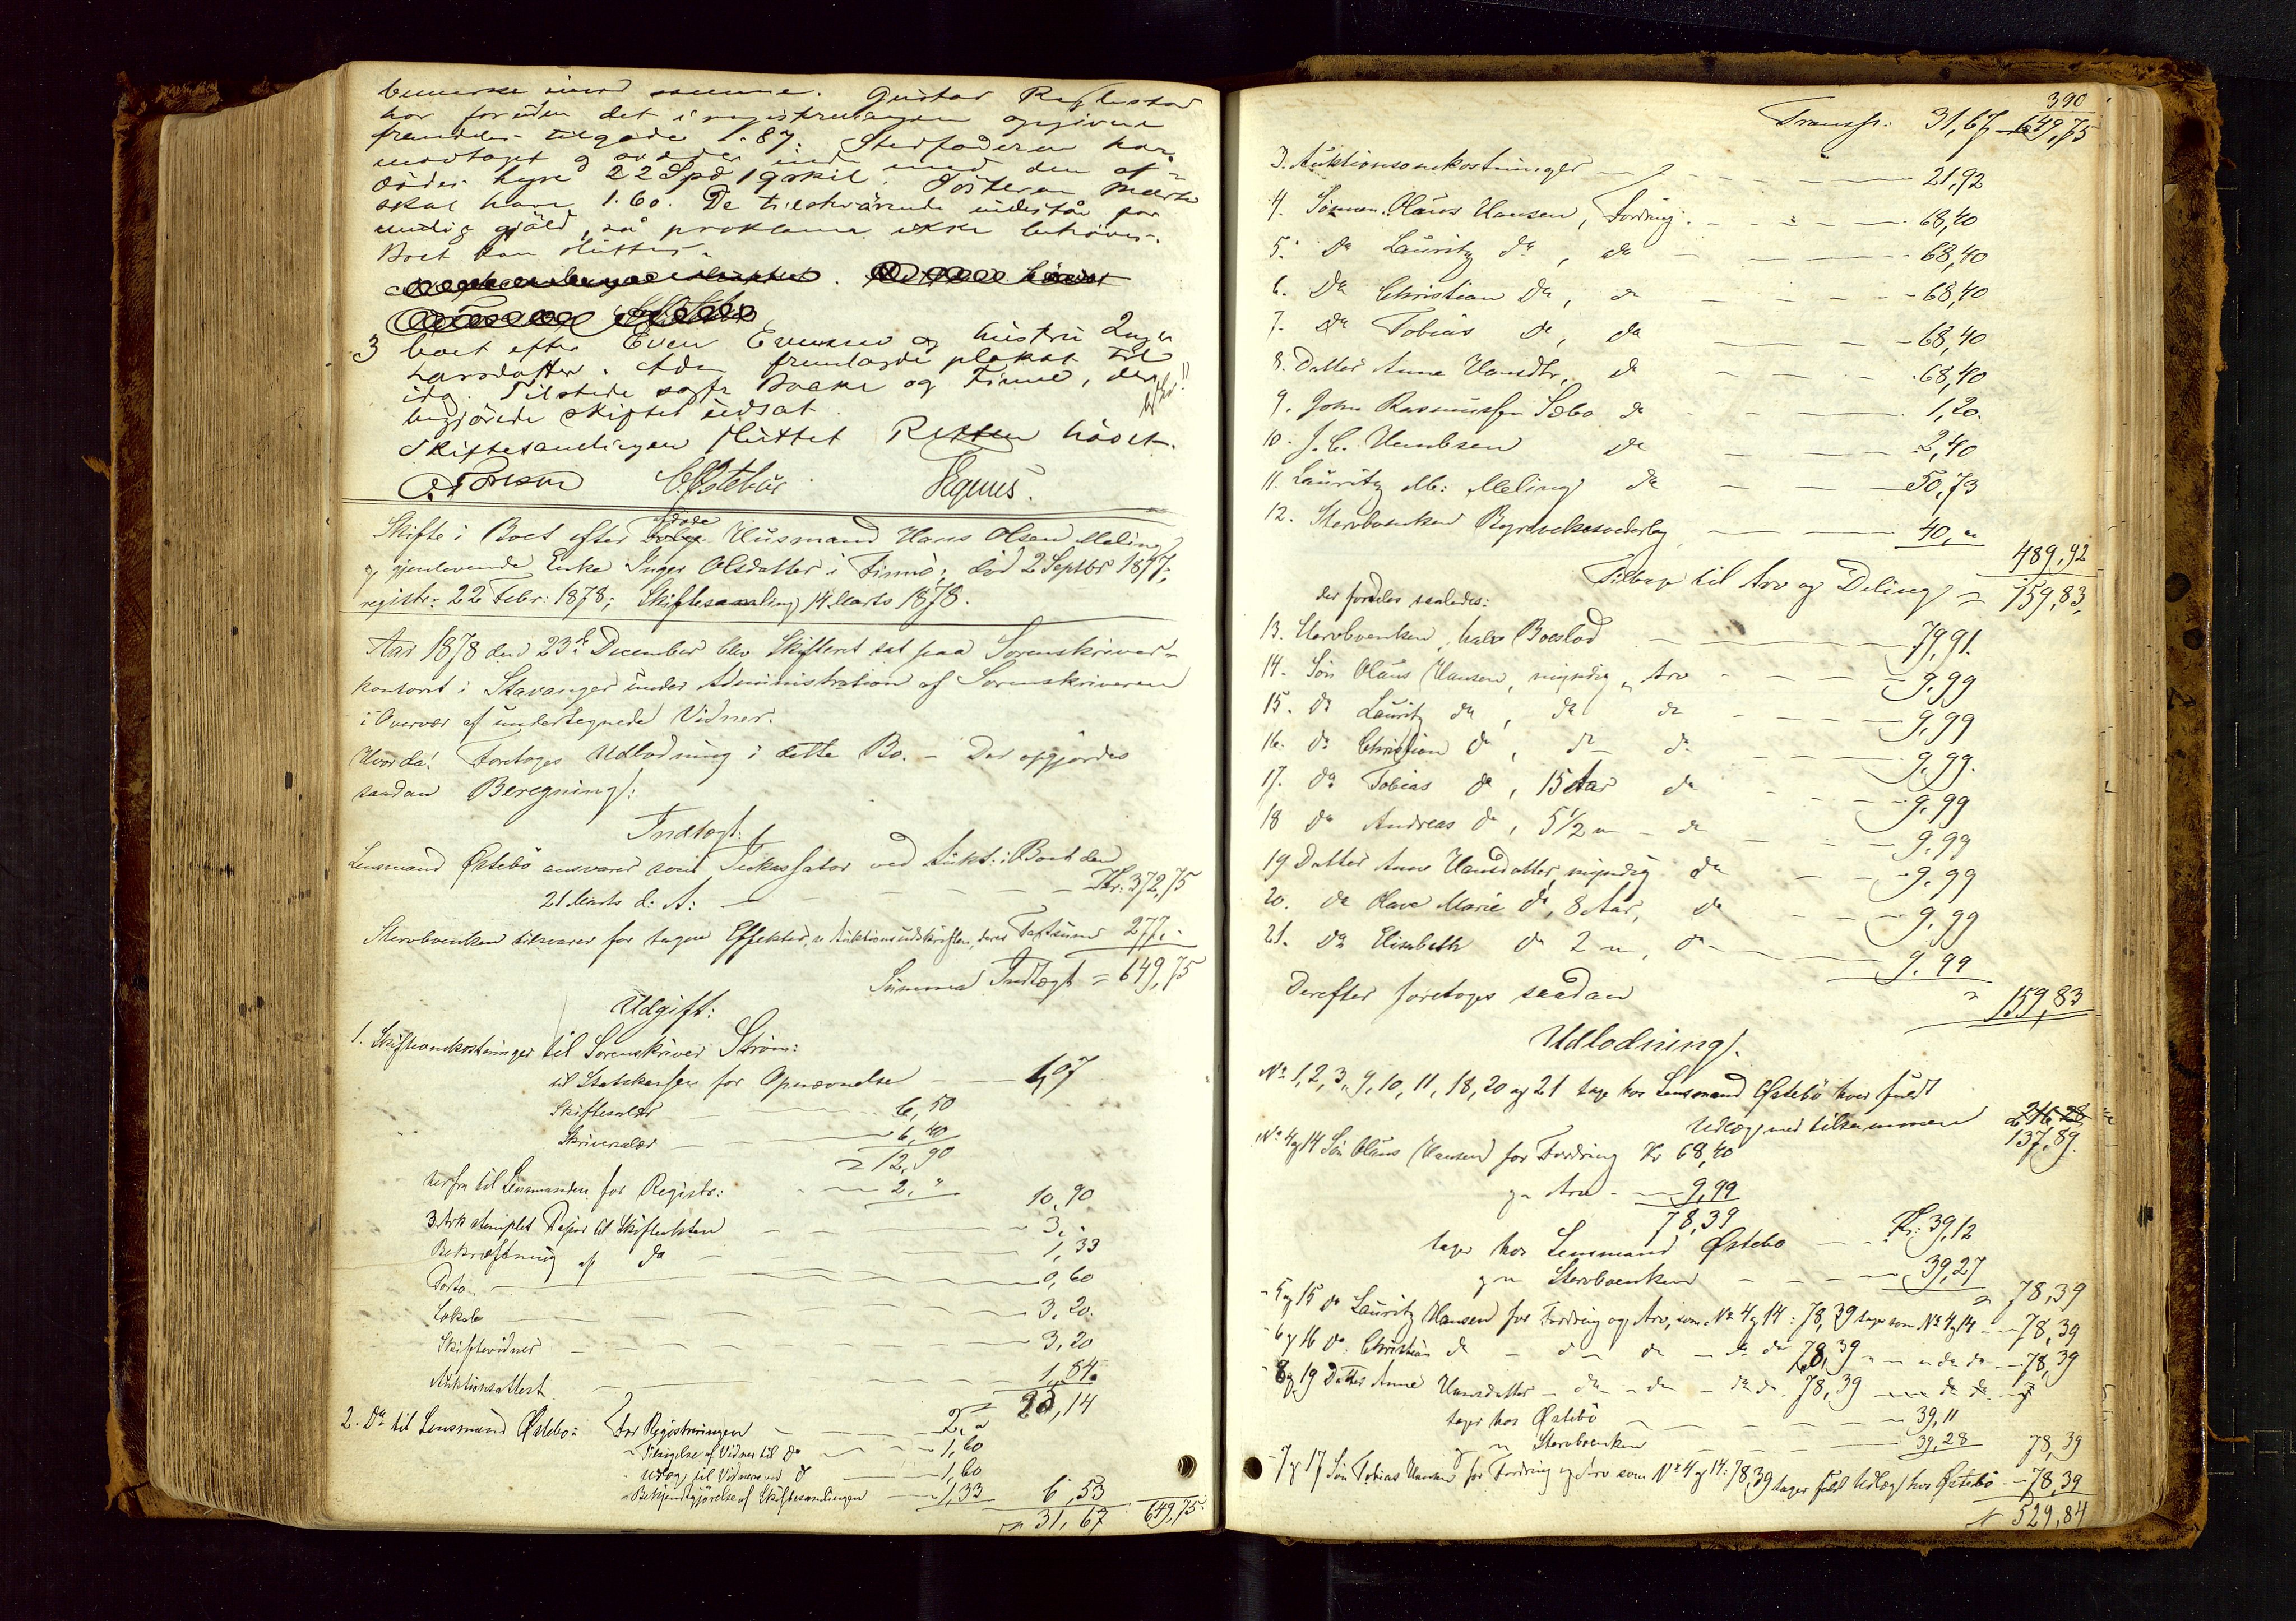 bemærke imod samme. Gustav
har foruden det i registreringen opgivne
fremdeles tilgode 87. Stedfaderen har
modtaget den af-
dødes hyre 22 Spd 19 skil. Søsteren Marta
skal have 1.60. De tilstedeværende indestår for
mulig gjæld, så proklama ikke behøves.
Boet kan sluttes.
3 boet efter Even Evensen og hustru Inger
Larsdatter. fremlagde plakat til
idag. Tilstede sagfr Baake og Finne, der
begjærede skiftet udsat.
Skiftesamlingen sluttet Retten hævet.
C. Østebø
Skifte i Boet efter døde Husmand Hans Olsen Meling
og gjenlevende Enke Inger Olsdatter i Finnø; død 2 Septbr 1877;
registr: 22 Febr: 1878; Skiftesamling 14 Marts 1878.
Aar 1878 den 23de December blev Skifteret sat paa Sorenskriver-
kontoret i Stavanger under Administration af Sorenskriveren
i Overvær af undertegnede Vidner.
Hvorda! Foretages Udlodning i dette Bo. – Der opgjordes
saadan Beregning:
Indtægt:
Lensmand Østebø ansvarer som Inkassator ved Aukt: i Boet den
21 Marts d: A: — Kr: 372,75
Stervboenken tilsvarer for tagne Effekter, v: Auktionsudskriften, deres Taxtsum 277,-
Summa Indtægt = 649,75
Udgift:
1. Skifteomkostninger til Sorenskriver Strøm:
til Statskassen for Opnævnelse — 1,07
Skiftesalær — 6,50
Skriversalær — 6,40
= 12,90
herfra til Lensmanden for Registr: — 2,"
10,90
3 Ark stemplet Papir til Skifteakten — 3,-
Bekræftning af da — 1,33
Porto — 0,60
Lokale — 3,20
Skiftevidner — 3,20
Auktionsattest — 1,84
= 25,14
2. Do til Lensmand Østebø: For Registreringen — 2,"
- Tilsigelse af Vidner til do — 1,60
- Udlæg til Vidnerne ved do — 1,60
- Bekjendtgjørelse af Skiftesamlingen — 1,33 6,53
= 31,67 649,75
390
Transp: 31,67 – 649,75
3. Auktionsomkostninger — 21,92
4. Sønnen Olaus Hansen, Fordring: — 68,40
5. Do Lauritz do, do — 68,40
6. Do Christian Do, do — 68,40
7. Do Tobias do, do — 68,40
8. Datter Anne Hansdtr, do — 68,40
9. John Rasmussen Sæbø do — 1,20.
10. J. C. do — 2,40
11. Lauritz M: Meling do — 50,73
12. Stervboenken Begravelsesvederlag — 40,"
489,92
Tilbage til Arv og Deling = 159,83.
der fordeles saaledes:
13. Stervboenken, halv Boeslod — 79,91.
14. Søn Olaus Hansen, myndig, Arv — 9,99
15. do Lauritz do, do do — 9,99
16. do Christian do, do do — 9,99.
17. do Tobias do, 15 Aar do — 9,99
18 do Andreas do, 5 1/2 " – do — 9,99
19 Datter Anne Hansdatter, myndig do — 9,99
20. do Olave Marie do, 8 Aar, do — 9,99
21. Do Elisabeth do 2 ", do — 9,99
= 159,83
Derefter foretoges saadan
Udlodning:
No 1, 2, 3, 9, 10, 11, 18, 20 og 21 tage hos Lensmand Østebø hver fuldt
Udlæg med tilsammen 137,89.
No 4 og 14 Søn Olaus Hansen for Fordring Kr 68,40
Arv — 9,99
78,39
tager hos Lensmand Østebø — Kr: 39,12
" Stervboenken — 39,27
= 78,39
- 5 og 15 do Lauritz Hansen for Fordring og Arv, som No 4 og 14: 78,39 tager som No 4 og 14 — 78,39
- 6 og 16 do Christian do — do — do do 78,39 — do do — 78,39
- 8 og 19 Datter Anne Hansdatter — do — do — do do 78,39
tager hos Østebø — 39,11
" Stervboenken — 39,28 78,39
- 7 og 17 Søn Tobias Hansen for Fordring og Arv som No 4 og 14: 78,39 tager fuldt Udlæg hos Østebø — 78,39
529,84